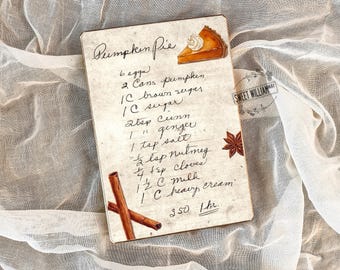 Pumpkin Pie
6 eggs
2 Cans pumpkin
1 C brown suger
1 C sugar
2 tsp Cinn
1 " ginger
1 tsp salt
½ tsp nutmeg
½ tsp cloves
1 ½ C milk
1 C heavy cream
350 1 hr
SWEET WILLIAM